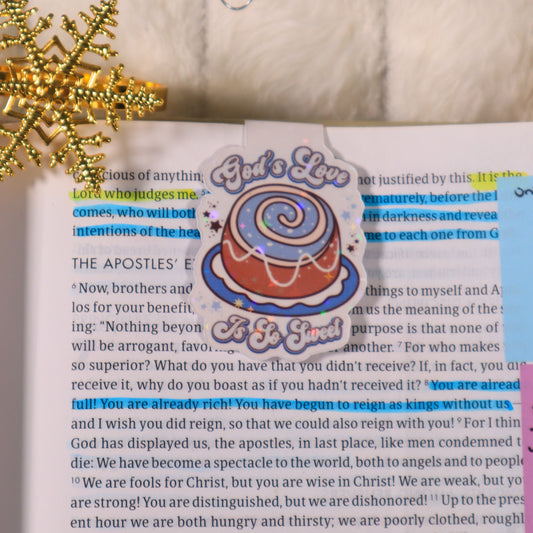 God's Love
Is So Sweet
scious of anything not justified by this. It is the
Lord who judges me. prematurely, before the
comes, who will both in darkness and revea
intentions of the hea me to each one from G
THE APOSTLES' E
6 Now, brothers and things to myself and Ap
los for your benefit, m us the meaning of the s
ing: "Nothing beyon purpose is that none of
will be arrogant, favoring another. 7 For who makes
so superior? What do you have that you didn't receive? If, in fact, you di
receive it, why do you boast as if you hadn't received it? 8 You are alread
full! You are already rich! You have begun to reign as kings without us,
and I wish you did reign, so that we could also reign with you! 9 For I thin
God has displayed us, the apostles, in last place, like men condemned t
die: We have become a spectacle to the world, both to angels and to people
10 We are fools for Christ, but you are wise in Christ! We are weak, but yo
are strong! You are distinguished, but we are dishonored! 11 Up to the pres
ent hour we are both hungry and thirsty; we are poorly clothed, roughl